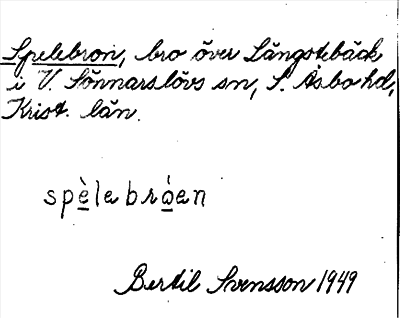 Spelebron, bro över Långstebäck
i V. Sönnarslövs sn, S. Åsbo hd,
Krist. län.
spè̲lebro̲̍en
Bertil Svensson 1949